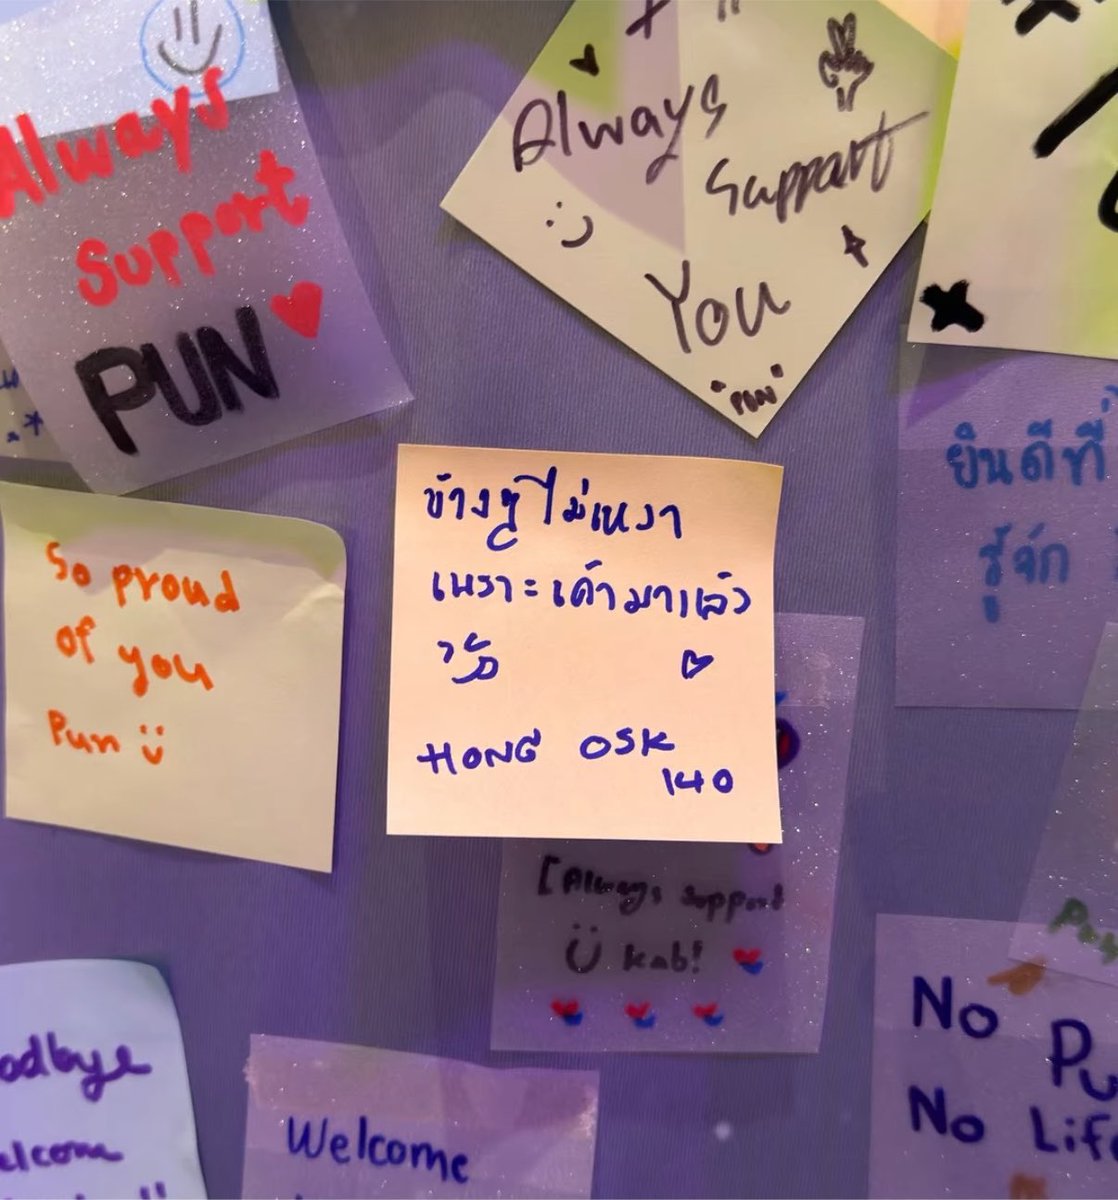 Always
Support
PUN
Always
Support
You
"PUN"
ยินดีที่
รู้จัก
So proud
of you
Pun
ข้างกูไม่เหงา
เพราะเค้ามาแล้ว
HONG OSK
140
[Always support
kab!
Welcome
No
No Life